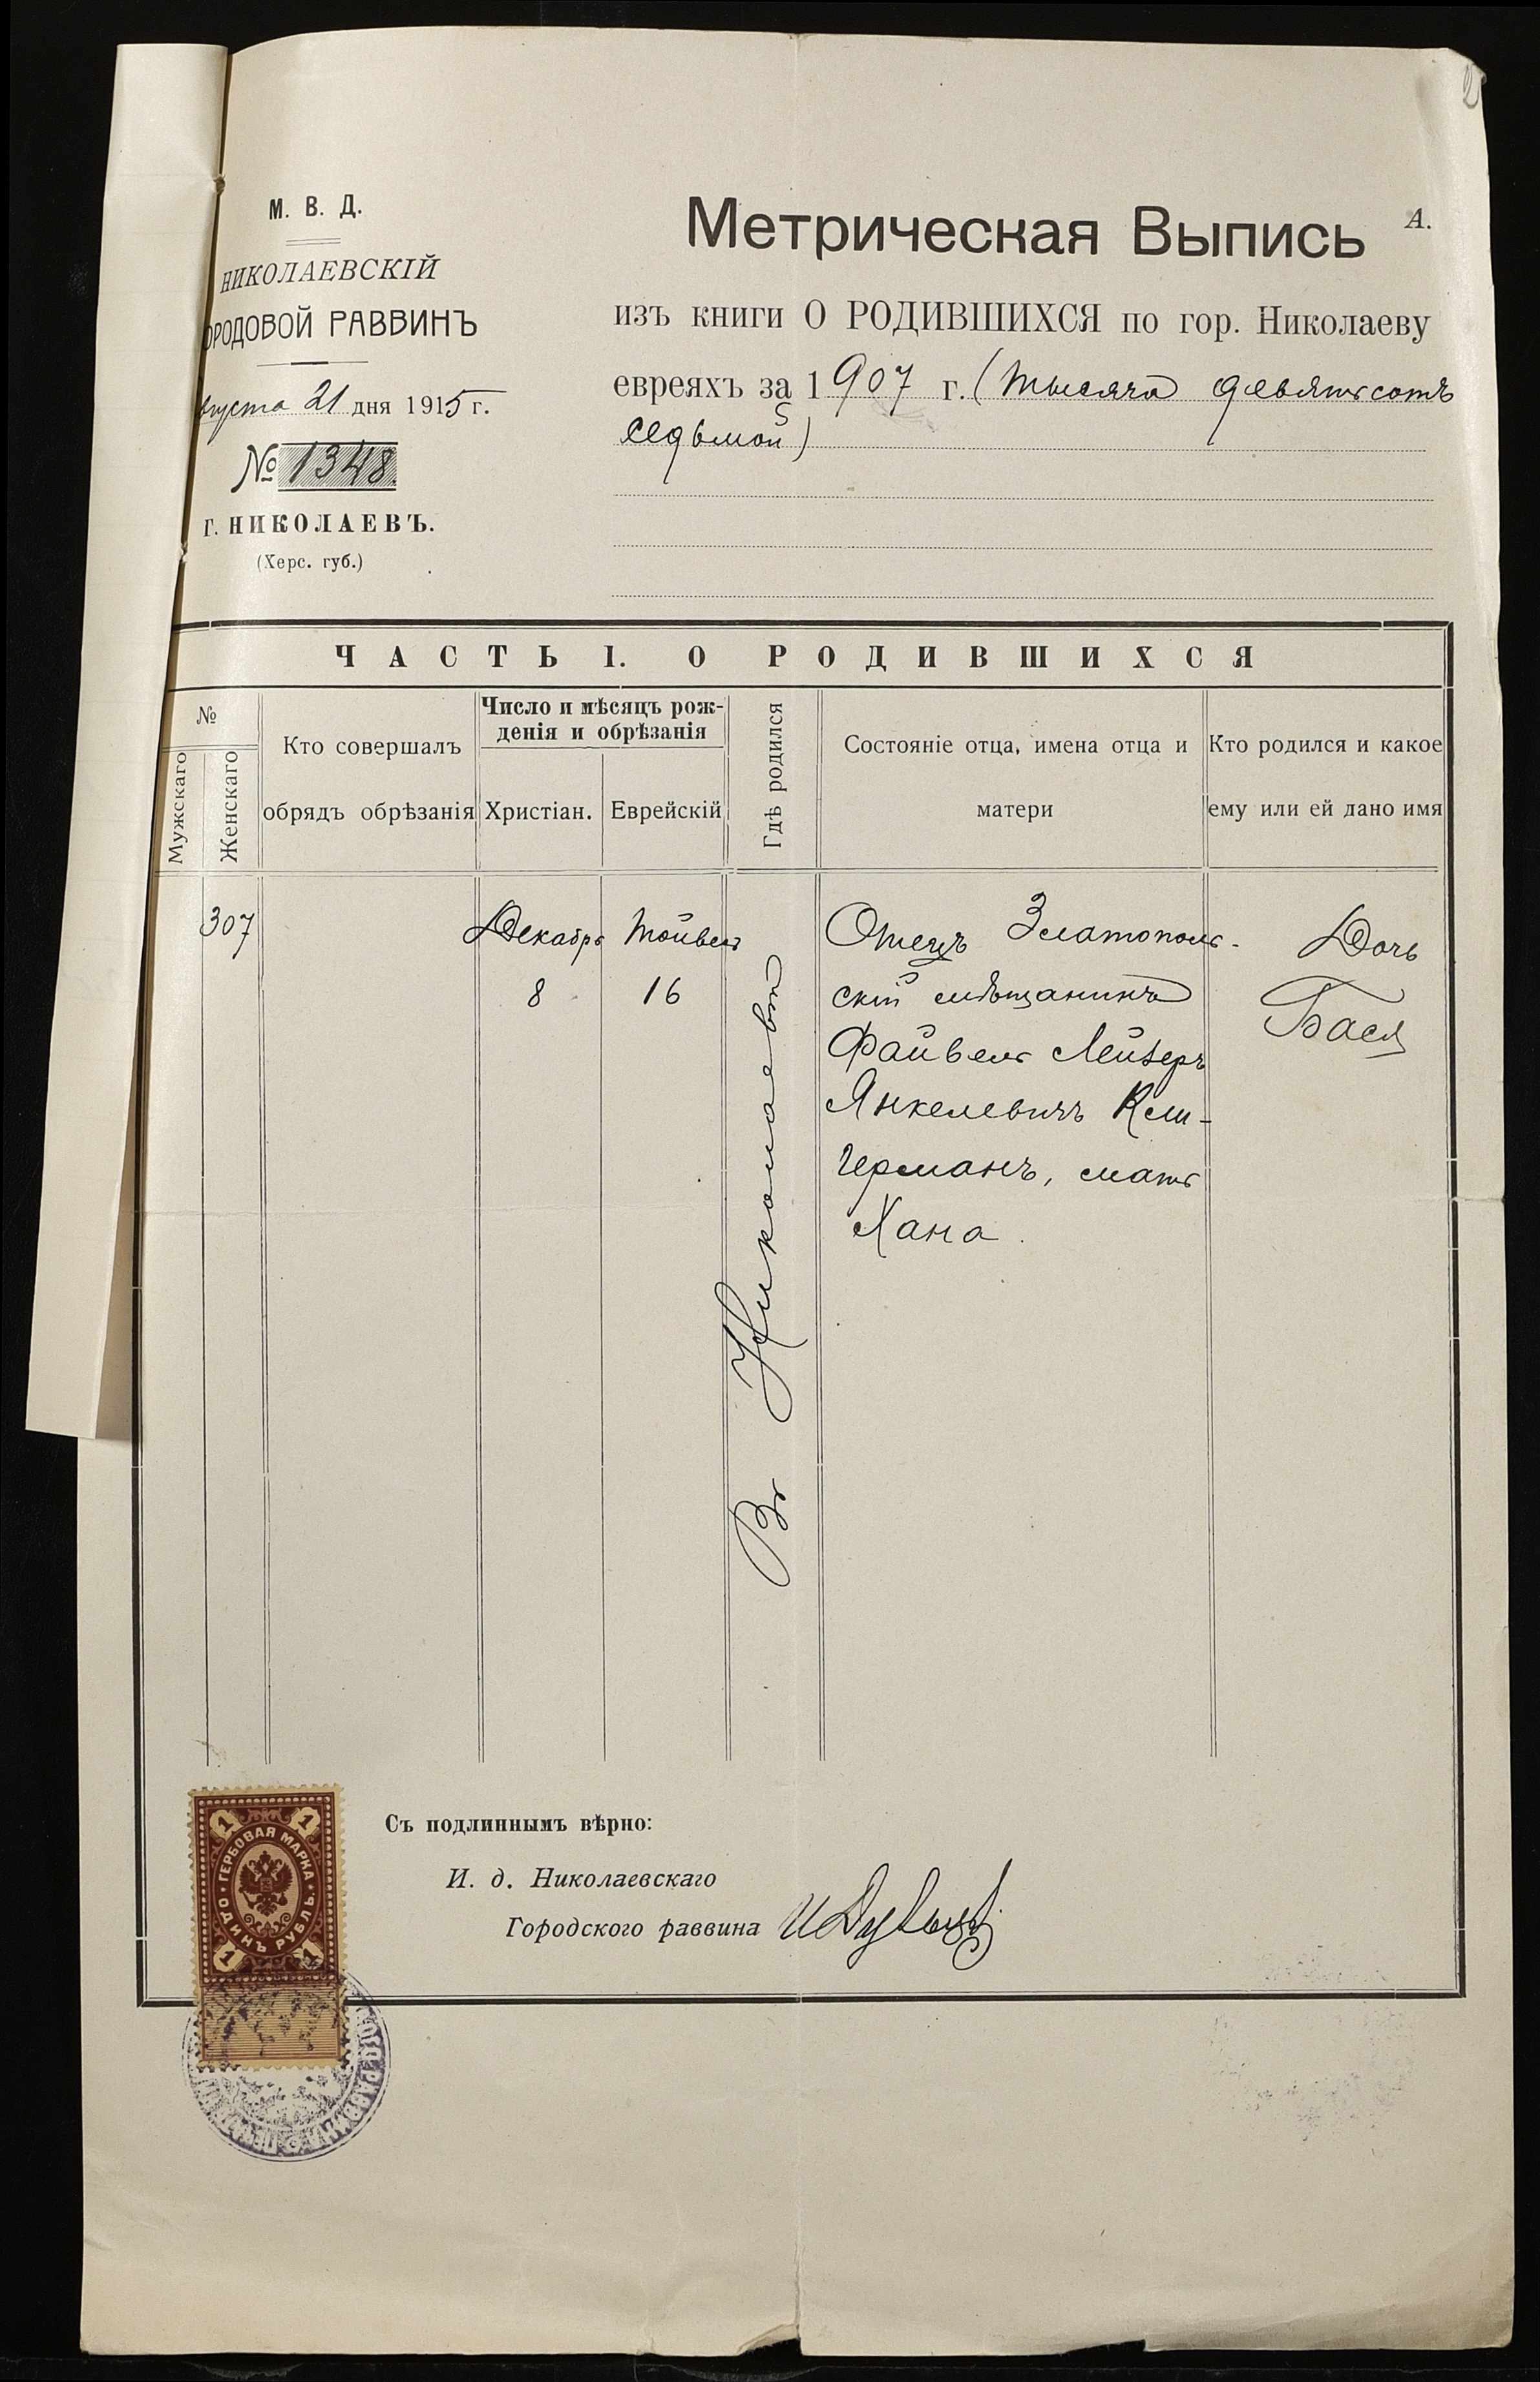 М. В. Д.
НИКОЛАЕВСКІЙ
ОРОДОВОЙ РАВВИНЪ
вгуста 21 дня 1915 г.
№ 1348.
г. НИКОЛАЕВЪ.
(Херс. губ.)
Метрическая Выпись А.
изъ книги О РОДИВШИХСЯ по гор. Николаеву
евреяхъ за 1907 г. (тысяча девятьсотъ
седьмой)
ЧАСТЬ I. О РОДИВШИХСЯ
№
Мужскаго
Женскаго
Кто совершалъ
обрядъ обрѣзанія
Число и мѣсяцъ рож-
денія и обрѣзанія
Христіан.
Еврейскій
Гдѣ родился
Состояніе отца, имена отца и
матери
Кто родился и какое
ему или ей дано имя
307
Декабрь
8
Тойвель
16
Въ Николаевѣ
Отецъ Златополь-
скій мѣщанинъ
Файвель Лейзеръ
Янкелевичъ Кли-
германъ, мать
Хана.
Дочь
Бася
ГЕРБОВАЯ МАРКА
ОДИНЪ РУБЛЬ.
1 1
1 1
Съ подлиннымъ вѣрно:
И. д. Николаевскаго
Городского раввина